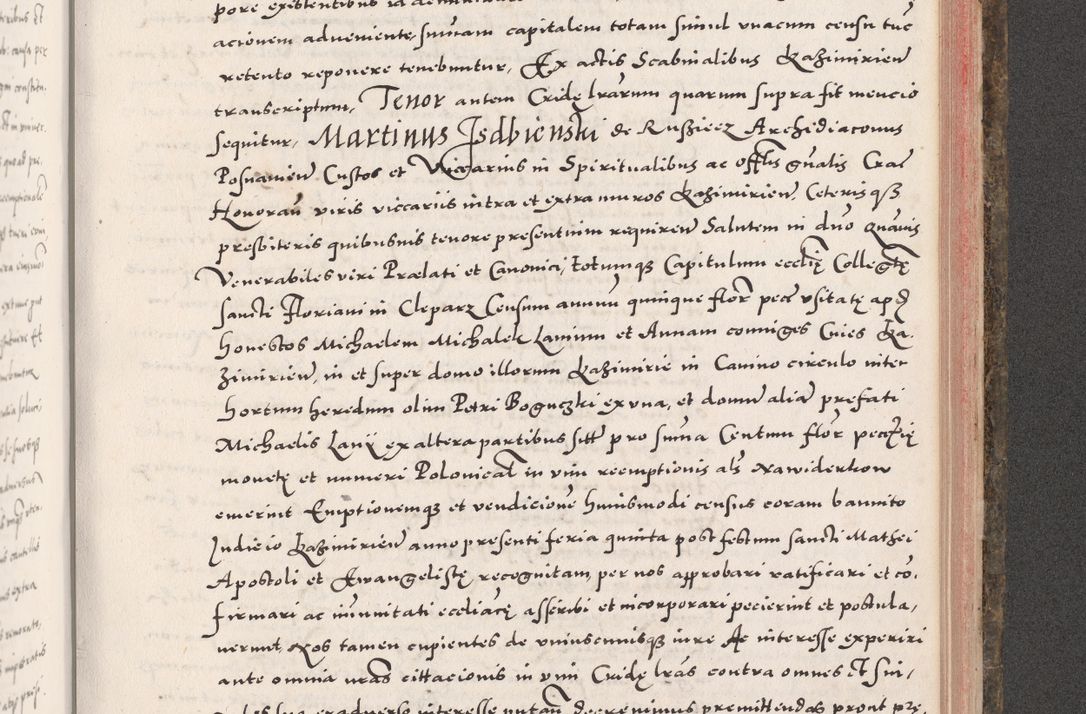 pore existentibus id
acionem adveniente, summam capitalem totam simul vnacum censu tuc
retento reponere tenebuntur, Ex actis Scabinalibus Kazimirien̄
transcriptum, Tenor autem Cridę lrarum quarum supra fit mencio
sequitur, Martinus Isdbienski de Russiecz Archidiaconus
Posnanien̄ Custos et Viccarius in Spiritualibus ac offlis gnalis Crac
Honoran̄ viris viccariis intra et extra muros Kazimirien̄, Ceterisqȝ
presbiteris quibusuis tenore presentium requiren̄ Salutem in dno Quamis
Venerabiles viri Prælati et Canonici, totumqȝ Capitulum ecclię Collegtę
sancti Floriani in Cleparz Censum annuū quinque flor pecc̄ vsitatę apd
honestos Michaelem Michalek Lanium et Annam coniuges Ciues Ka,
zimirien̄, in et super domo illorum Kazimirię in Camino circulo inter
hortum heredum olim Petri Boguczki ex vna, et domū aliā prefati
Michaelis Lanij ex altera partibus sitt̄ pro suma Centum flor pecc̄ię
monetę et numeri Polonicat̄ in vim reemptionis als Nawiderkow
emerint Emptionemqȝ et vendicionē huiusmodi census coram bannito
Iudicio Kazimirien̄ anno presenti feria quinta post festum sancti Mathei
Apostoli et Ewangelistę recognitam, per nos approbari ratificari et cō,
firmari ac immunitati eccliācę asscribi et incorporari pecierint et postula,
uerunt, Nos tamen cupientes de vniuscuiusqȝ iure Ac interesse experiri
ante omnia vras cittacionis in vim Cridę lras contra omnes Et sin,
interesse putan̄ decreuimus premittendas prout prę,